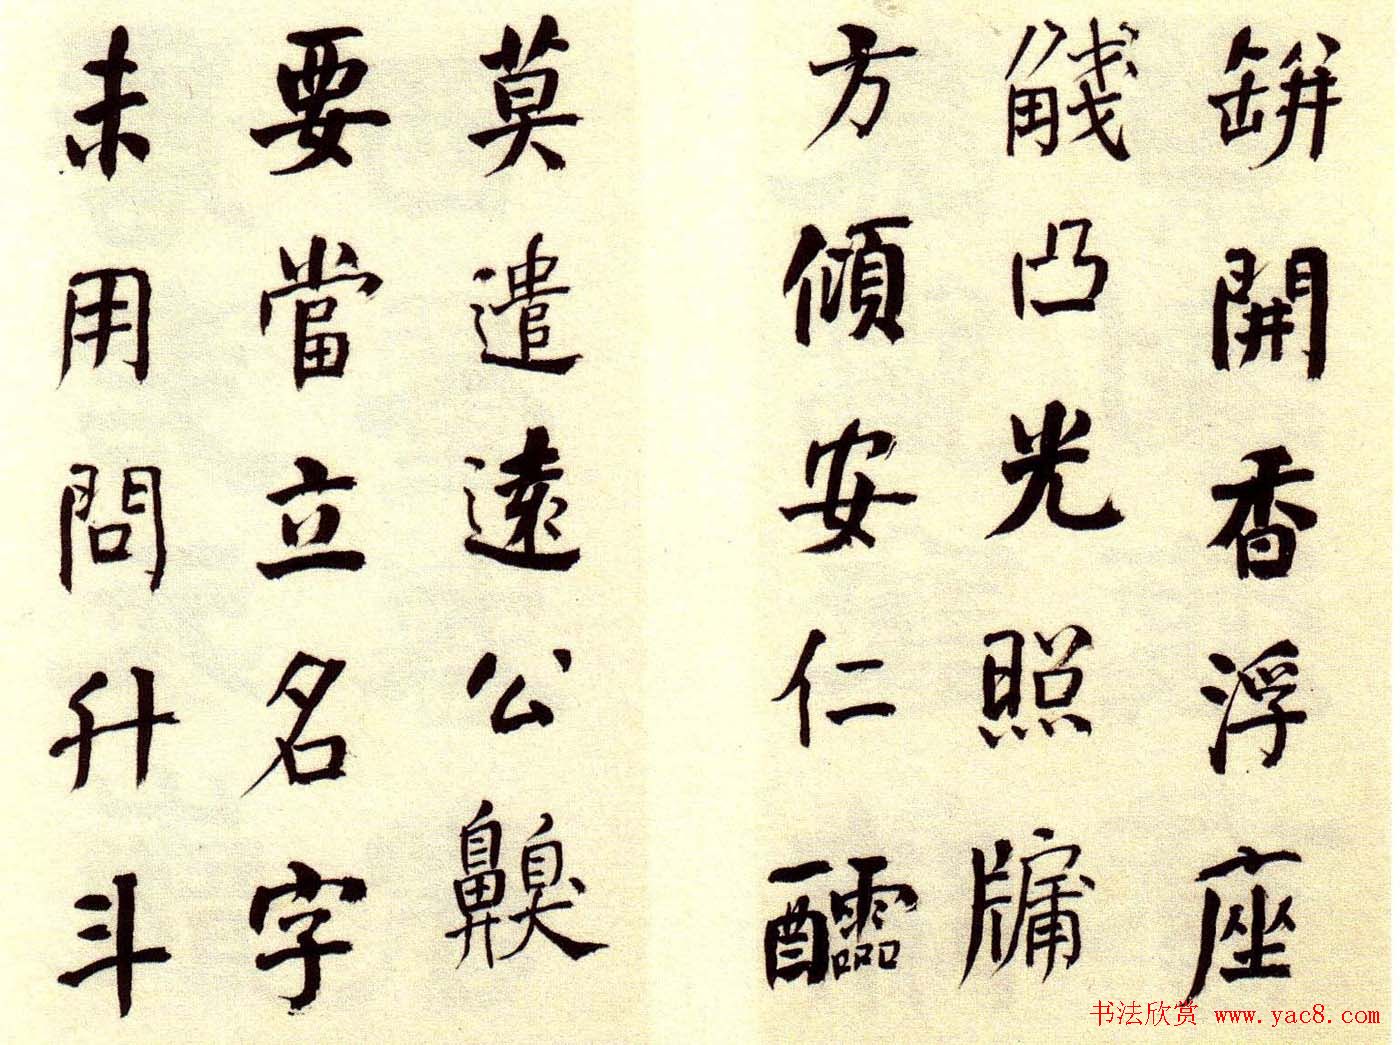 缾開香浮座
凸光照牖
方傾安仁醽
莫遣遠公齅
要當立名字
未用問升斗
书法欣赏 www.yac8.com